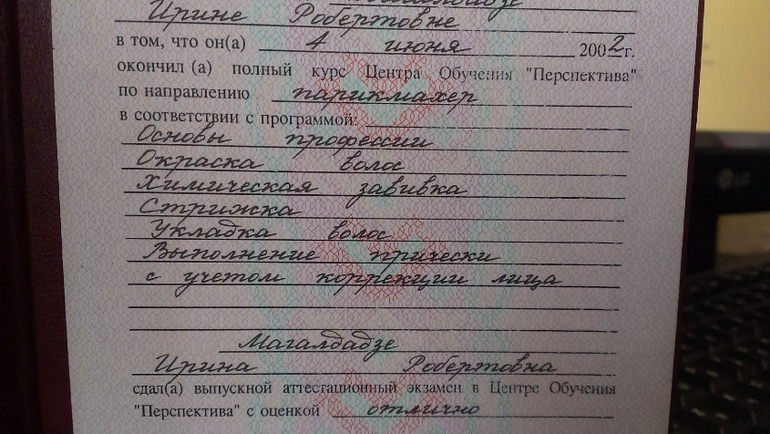 Ирине Робертовне
в том, что он(а) 4 июня 2002г.
окончил (а) полный курс Центра Обучения "Перспектива"
по направлению парикмахер
в соответствии с программой:
Основы профессии
Окраска волос
Химическая завивка
Стрижка
Укладка волос
Выполнение прически
с учетом коррекции лица
Магалдадзе
Ирина Робертовна
сдал(а) выпускной аттестационный экзамен в Центре Обучения
"Перспектива" с оценкой отлично